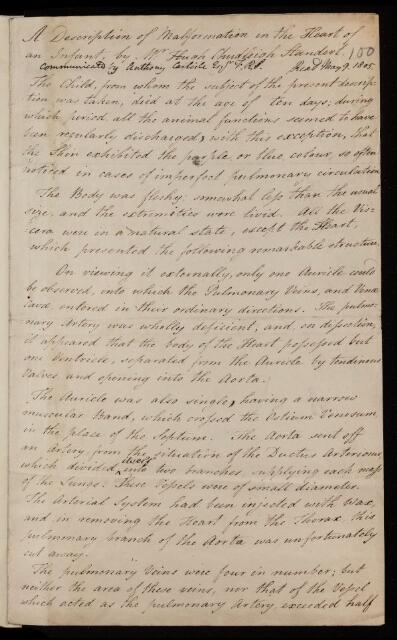 A Description of Malformation in the Heart of
an Infant; by Mr Hugh Chudleigh Standert. 100
Communicated by Anthony Carlisle Esqr F.R.S. Read May 9. 1805.
The Child, from whom the subject of the present descrip-
tion was taken, died at the age of ten days; during
which period all the animal functions seemed to have
been regularly discharged, with this exception, that
the Skin exhibited the purple or blue colour, so often
noticed in cases of imperfect pulmonary circulation.
The Body was fleshy; somewhat less than the usual
size, and the extremities were livid. All the Vis-
cera were in a natural state, except the Heart,
which presented the following remarkable structure.
On viewing it externally, only one Auricle could
be observed, into which the Pulmonary Veins, and Venæ
Cavæ, entered in their ordinary directions. The pulmo-
nary Artery was wholly deficient, and, on dissection,
it appeared that the body of the Heart possessed but
one Ventricle, separated from the Auricle by tendinous
Valves, and opening into the Aorta.
The Auricle was also single, having a narrow
muscular Band, which crossed the Ostium Venosum
in the place of the Septum. The Aorta sent off
an Artery from the situation of the Ductus Arteriosus
which divided into two branches, supplying each mass
of the Lungs. These Vessels were of small diameter.
The Arterial System had been injected with Wax,
and in removing the Heart from the Thorax, this
pulmonary branch of the Aorta was unfortunately
cut away.
The pulmonary Veins were four in number; but
neither the area of these veins, nor that of the Vessel
which acted as the pulmonary Artery exceeded half